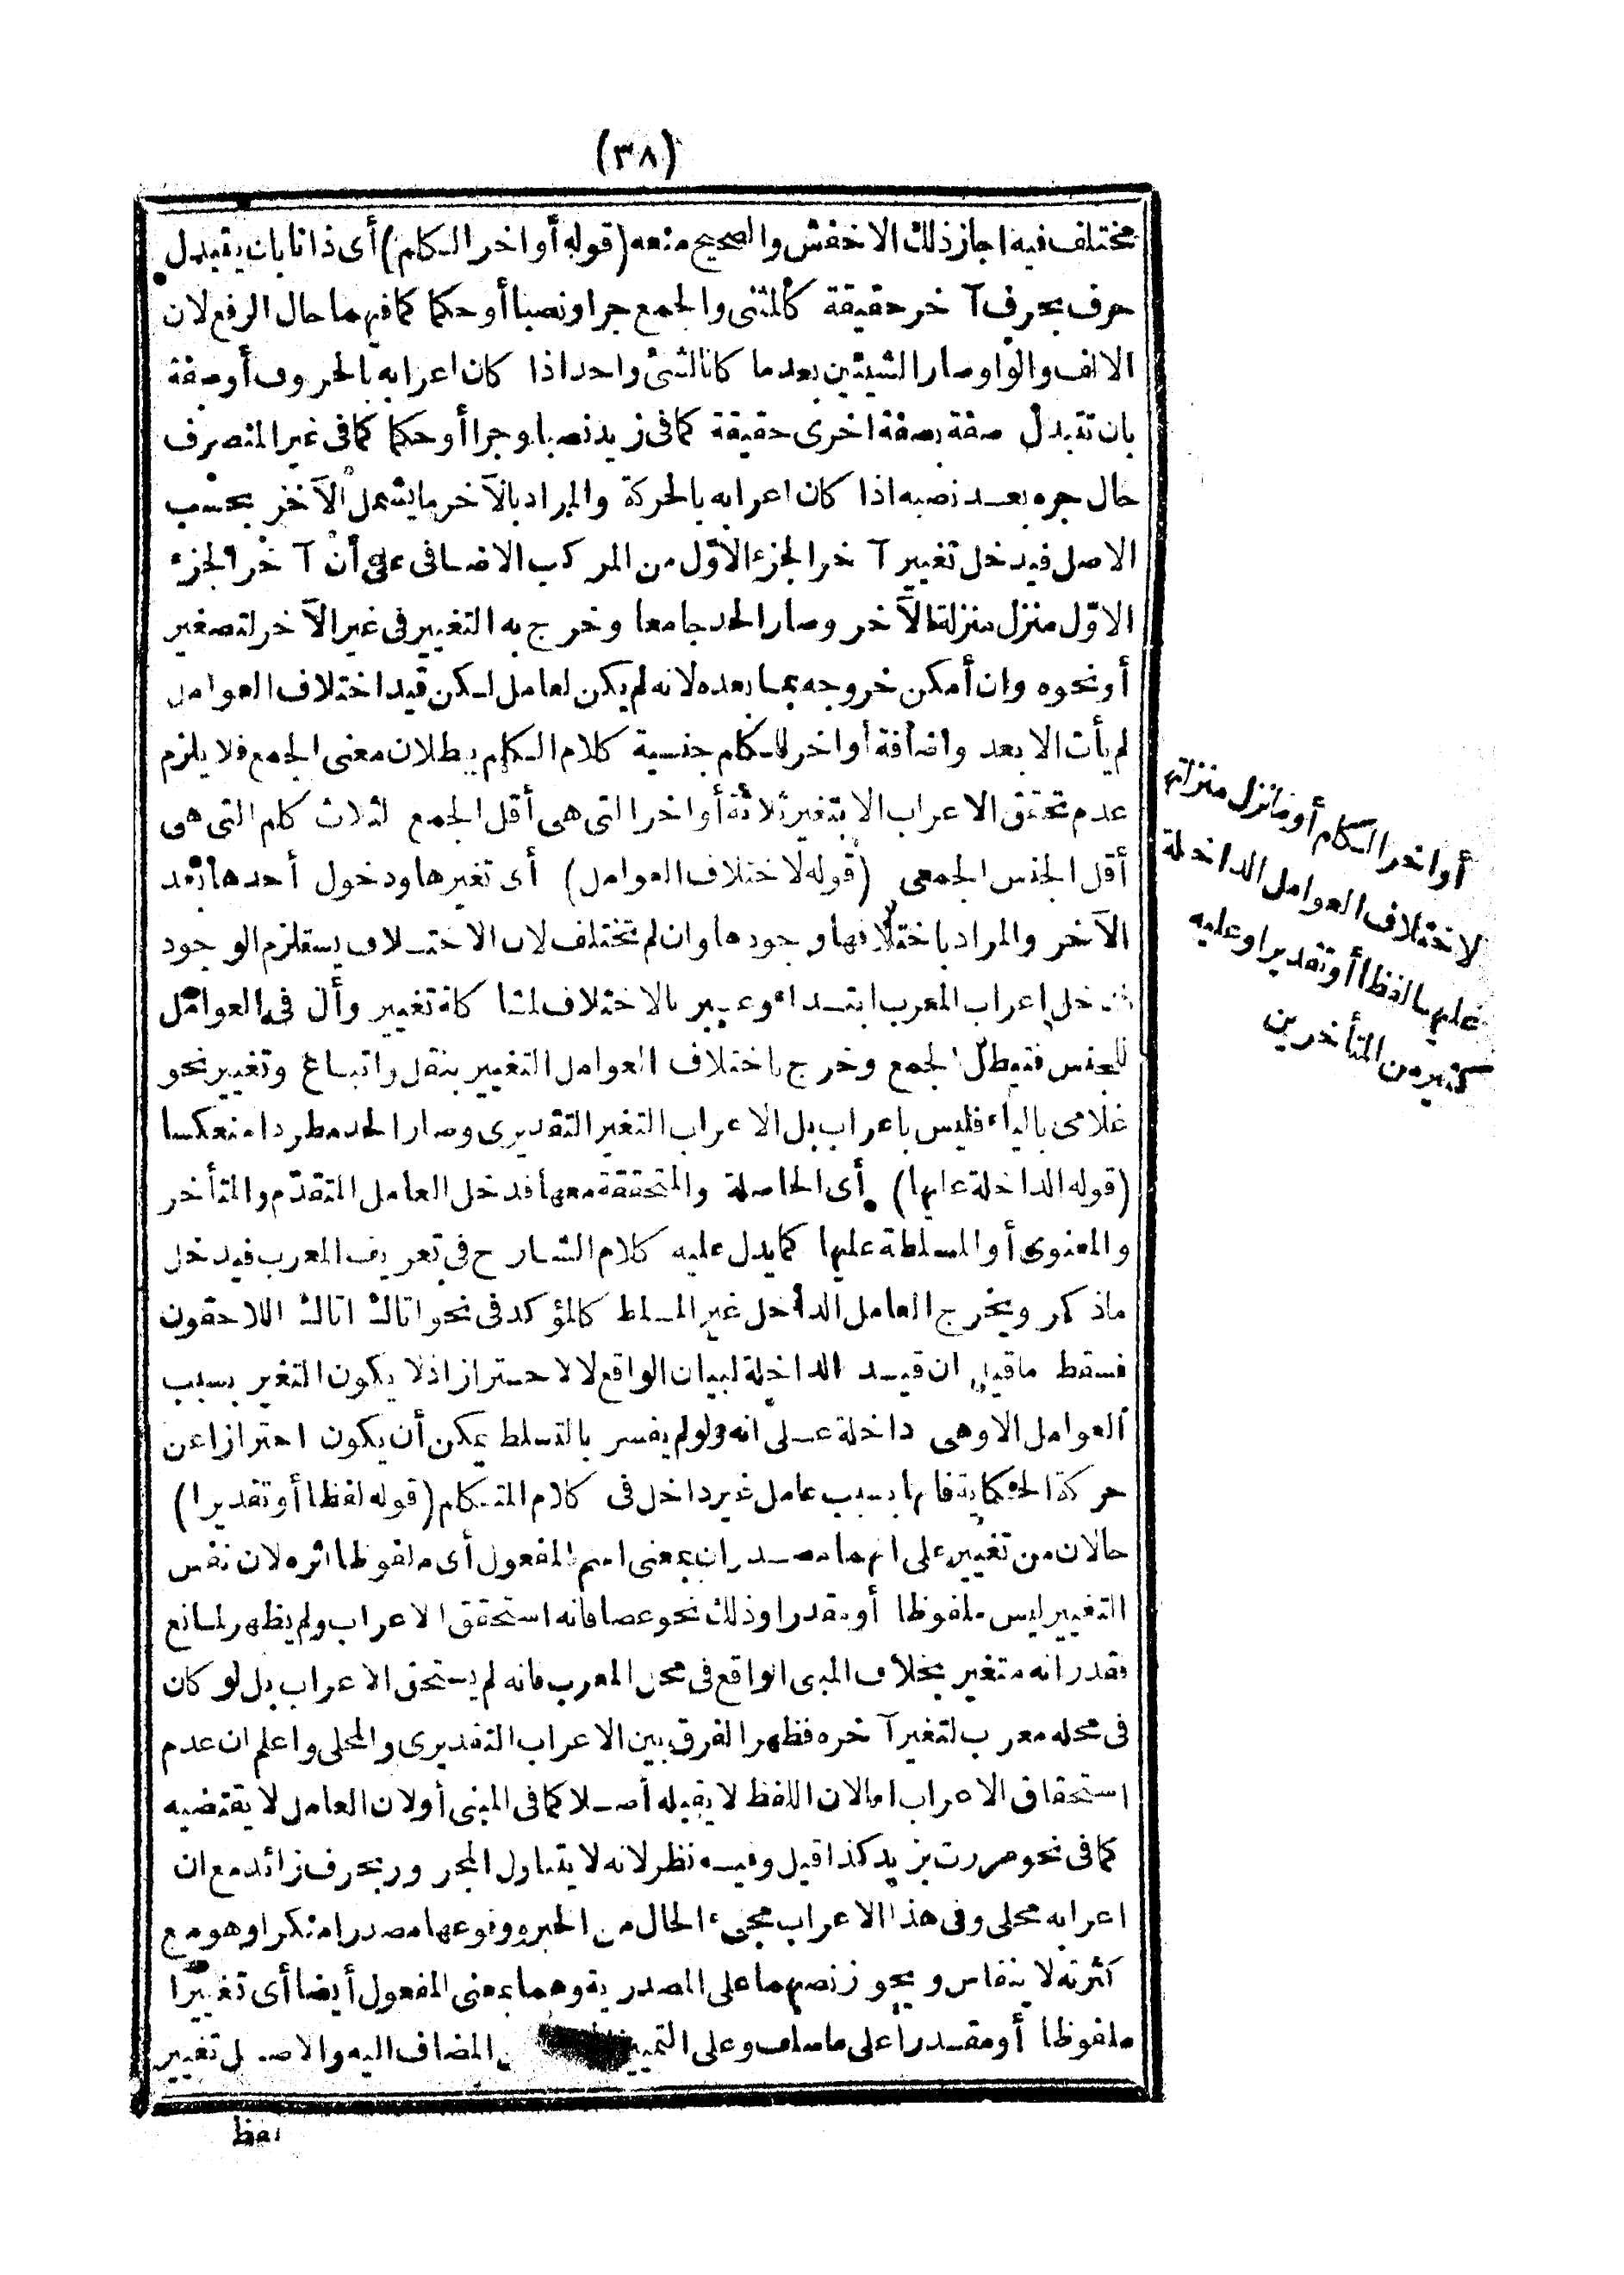 (٣٨)
مختلف فيه اجاز ذلك الاخفش والصحيح منعه (قوله أواخر الكلم) أى ذاتا بان يتبدل
حرف بحرف آخر حقيقة كالمثنى والجمع جرا ونصبا أو حكما كما فيهما حال الرفع لان
الالف والواو صارا لشيئين بعد ما كانا لشئ واحد اذا كان اعرابه بالحروف أو صفة
بان تتبدل صفة بصفة اخرى حقيقة كما فى زيد نصبا وجرا أو حكما كما فى غير المنصرف
حال جره بعد نصبه اذا كان اعرابه بالحركة والمراد بالآخر ما يشمل الآخر بحسب
الاصل فيدخل تغيير آخر الجزء الاوّل من المركب الاضافى على أن آخر الجزء
الاوّل منزل منزلة الآخر وصار الحد جامعا وخرج به التغيير فى غير الآخر لتصغير
أو نحوه وان أمكن خروجه بما بعده لانه لم يكن لعامل لكن قيد اختلاف العوامل
لم يأت الا بعد واضافة أواخر للكلم جنسية كلام الكلم يبطلان معنى الجمع فلا يلزم
عدم تحقق الاعراب الا بتغير ثلاثة أواخر التى هى أقل الجمع لثلاث كلم التى هى
أقل الجنس الجمعى (قوله لاختلاف العوامل) أى تغيرها ودخول أحدها بعد
الآخر والمراد باختلافها وجودها وان لم تختلف لان الاختلاف يستلزم الوجود
فدخل اعراب المعرب ابتداء وعبر بالاختلاف لمشاكلة تغيير وأل فى العوامل
للجنس فتبطل الجمع وخرج باختلاف العوامل التغيير بنقل واتباع وتغيير نحو
غلامى بالياء فليس باعراب بل الاعراب التغير التقديرى وصار الحد مطردا منعكسا
(قوله الداخلة عليها) أى الحاصلة والمتحققة معها فدخل العامل المتقدّم والمتأخر
والمعنوى أو المسلطة عليها كما يدل عليه كلام الشارح فى تعريف المعرب فيدخل
ما ذكر ويخرج العامل الداخل غير المسلط كالمؤكد فى نحو اتاك اتاك اللاحقون
فسقط ما قيل ان قيد الداخلة لبيان الواقع لا لاحتراز اذ لا يكون التغير بسبب
العوامل الا وهى داخلة على انه ولو لم يفسر بالتسلط يمكن أن يكون احترازا عن
حركة الحكاية فانها بسبب عامل غير داخل فى كلام المتكلم (قوله لفظا أو تقديرا)
حالان من تغيير على انهما مصدران بمعنى اسم المفعول أى ملفوظا اثره لان نفس
التغيير ليس ملفوظا أو مقدرا وذلك نحو عصا فانه استحقق الاعراب ولم يظهر لمانع
فقدر انه متغير بخلاف المبنى الواقع فى محل المعرب فانه لم يستحق الاعراب بل لو كان
فى محله معرب لتغير آخره فظهر الفرق بين الاعراب التقديرى والمحلى واعلم ان عدم
استحقاق الاعراب اما لان اللفظ لا يقبله أصلا كما فى المبنى أو لان العامل لا يقتضيه
كما فى نحو مررت بزيد كذا قيل وفيه نظر لانه لا يتناول المجرور بحرف زائد مع ان
اعرابه محلى وفى هذا الاعراب مجىء الحال من الخبر ووقوعها مصدرا منكرا وهو مع
كثرته لا ينقاس ويجوز نصبهما على المصدرية وهما بمعنى المفعول أيضا أى تغييرا
ملفوظا أو مقدرا على ما سلف وعلى التمييز المضاف اليه والاصل تغيير
لفظ
أواخر الكلم أو ما نزل منزلتها
لاختلاف العوامل الداخلة
عليها لفظا أو تقديرا وعليه
كثير من المتأخرين